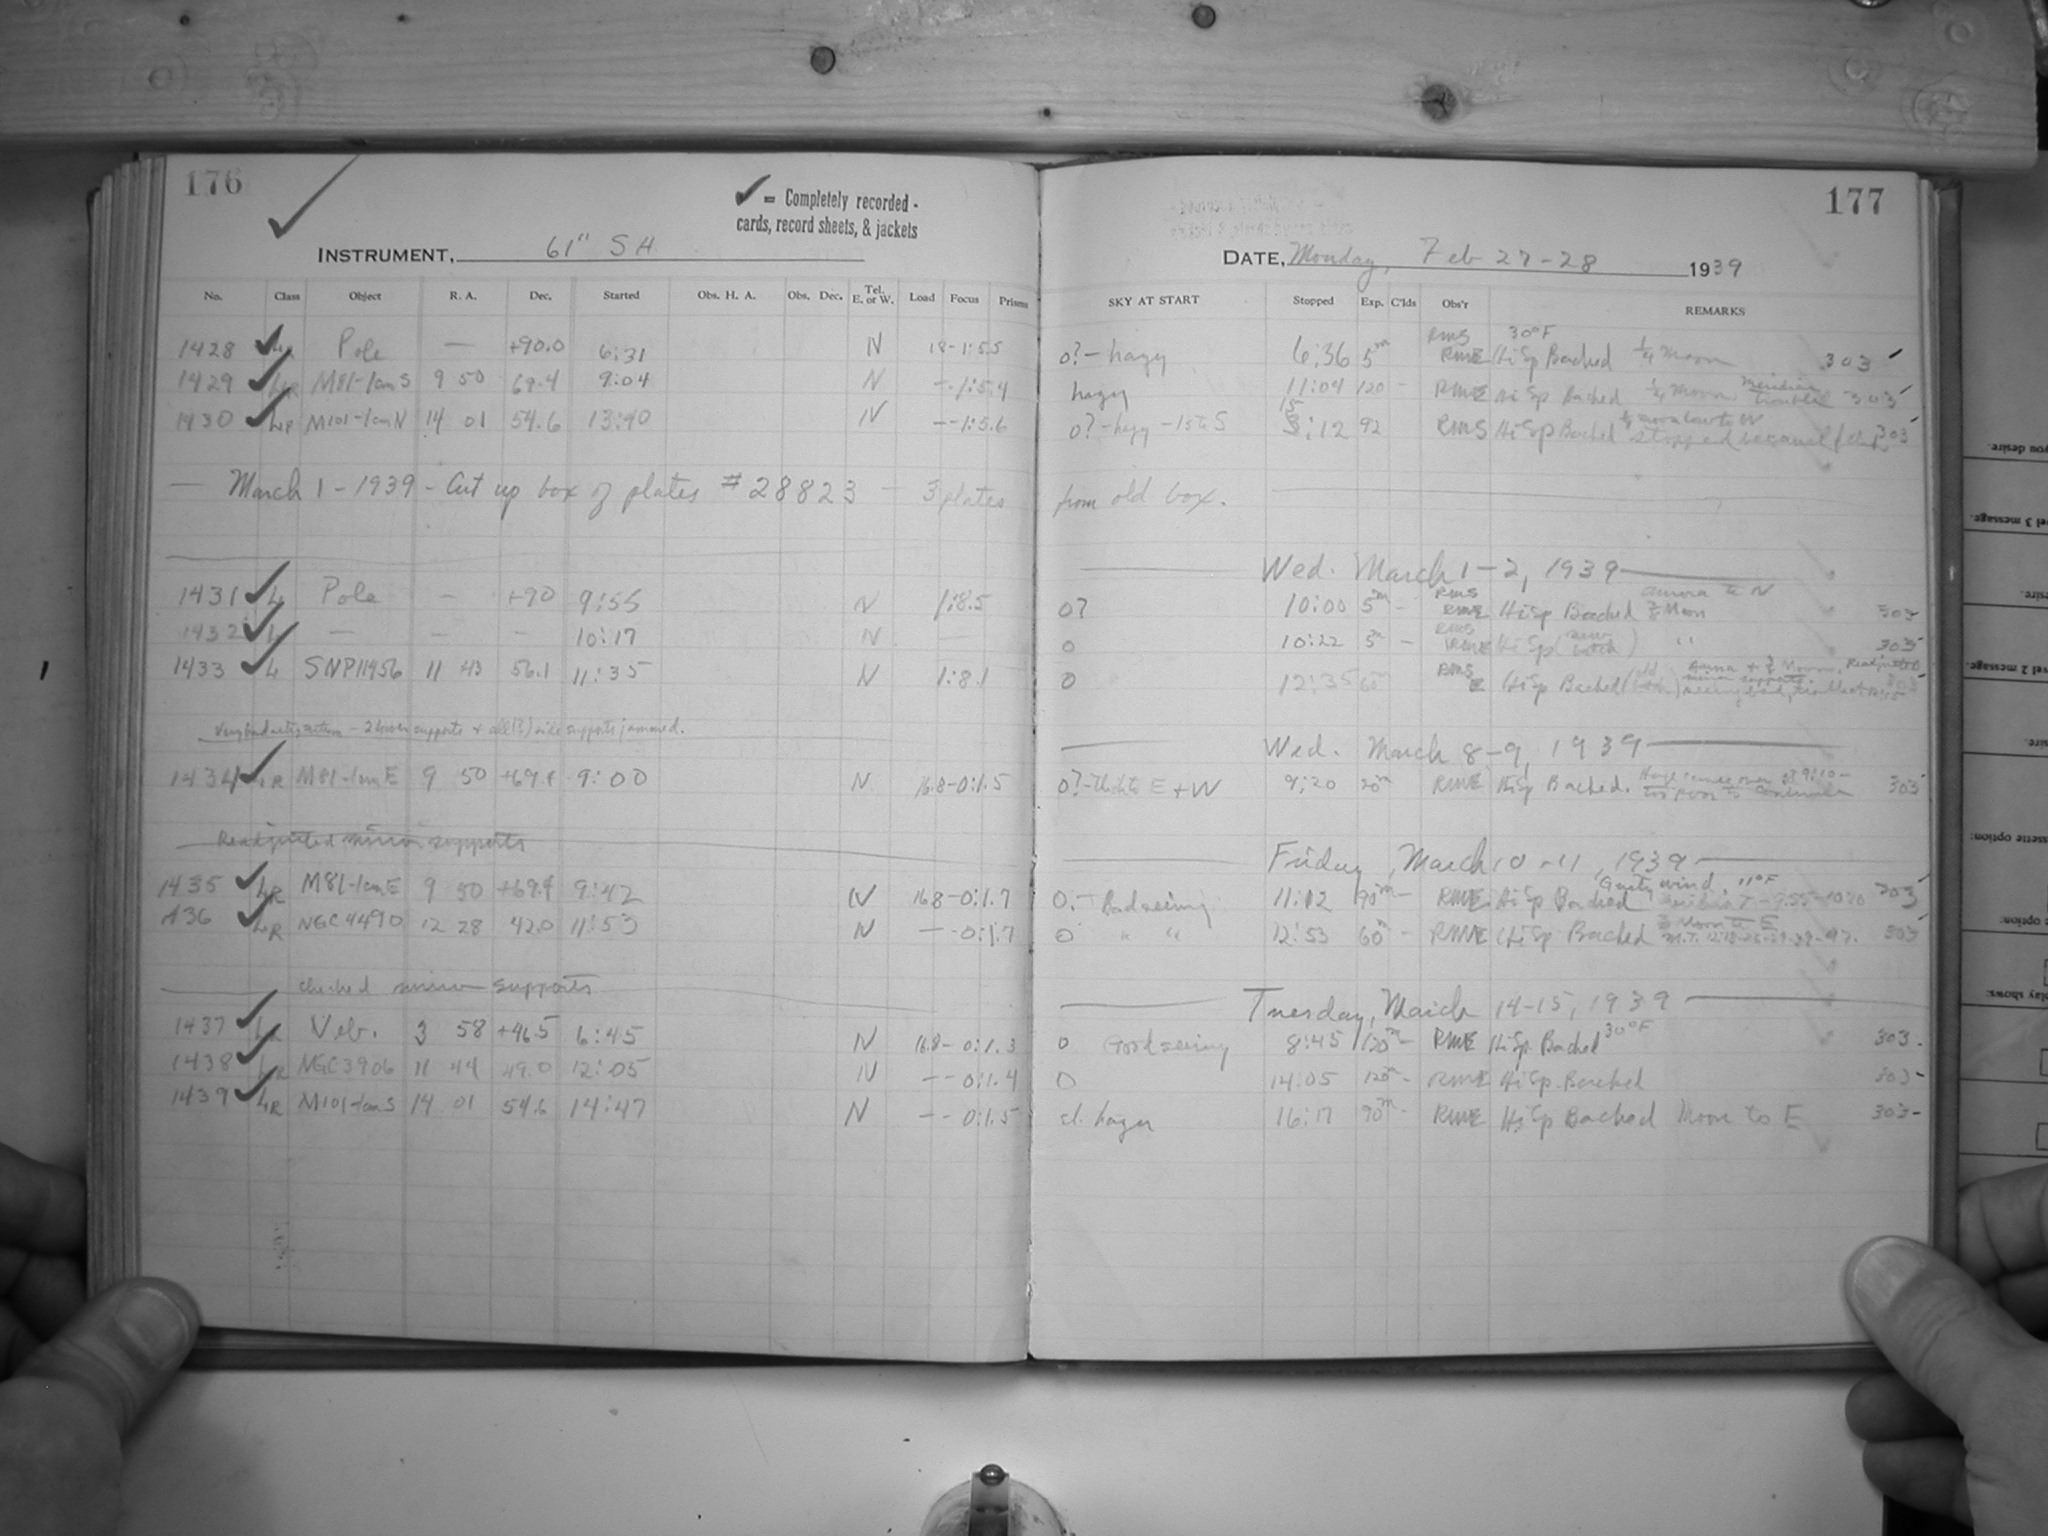 176
✓ = Completely recorded -
cards, record sheets, & jackets
INSTRUMENT, 61" SH
No. Class Object R. A. Dec. Started Obs. H. A. Obs. Dec. Tel. E. or W. Load Focus Prisms
1428 Pole — +90.0 6:31 N 18-1:5.5
1429 LR M81-1cmS 9 50 69.4 9:04 N --1:5.4
1430 LR M101-1cmN 14 01 54.6 13:40 N --1:5.6
— March 1 - 1939 - Cut up box of plates # 28823 — 3 plates
1431 L Pole - +90 9:55 N 1:8.5
1432 L — - - 10:17 N
1433 L 11 43 56.1 11:35 N 1:8.1
2 lower supports + all(?) side supports jammed.
1434 LR M81-1cmE 9 50 +69.4 9:00 N 16.8-0:1.5
Readjusted mirror supports
1435 LR M81-1cmE 9 50 +69.4 9:42 N 16.8-0:1.7
1436 LR NGC4490 12 28 42.0 11:53 N --0:1.7
Checked mirror supports
1437 LR 3 58 +46.5 6:45 N 16.8-0:1.3
1438 LR NGC3906 11 44 49.0 12:05 N --0:1.4
1439 LR M101-1cmS 14 01 54.6 14:47 N --0:1.5
177
DATE, Monday, Feb 27-28 1939
SKY AT START Stopped Exp. C'lds Obs'r REMARKS
0?- hazy 6:36 5m RMS RME 30°F Hi Sp Backed 1/4 Moon 303
hazy 11:04 120 - RME Hi Sp Backed 1/4 Moon Meridian trouble 303
0?-hazy - 15:12 92 RMS Hi Sp Backed 1/4 moon low to W stopped because of 303
from old box.
Wed. March 1-2, 1939
0? 10:00 5m - RMS RME Hi Sp Backed Moon aurora to N 303
0 10:22 5m - RMS RME Hi Sp (new batch) " 303
0 12:35 60m RMS E Hi Sp Backed (old batch) Moon. Readjusted mirror supports. 303
Wed. March 8-9, 1939
0?- E + W 9:20 20m RME Hi Sp Backed. over at 9:10 - too poor to continue 303
Friday, March 10-11, 1939
0.- Bad seeing 11:12 90m - RME Hi Sp Backed Gusty wind, 11°F 303
0 " " 12:53 60m - RME Hi Sp Backed Moon to E 303
Tuesday, March 14-15, 1939
0 Good seeing 8:45 120m - RME Hi Sp Backed 30°F 303 -
0 14:05 120m - RME Hi Sp Backed 303 -
sl. hazy 16:17 90m - RME Hi Sp Backed Moon to E 303 -
you desire.
3 message.
2 message.
cassette option:
option:
play shows: